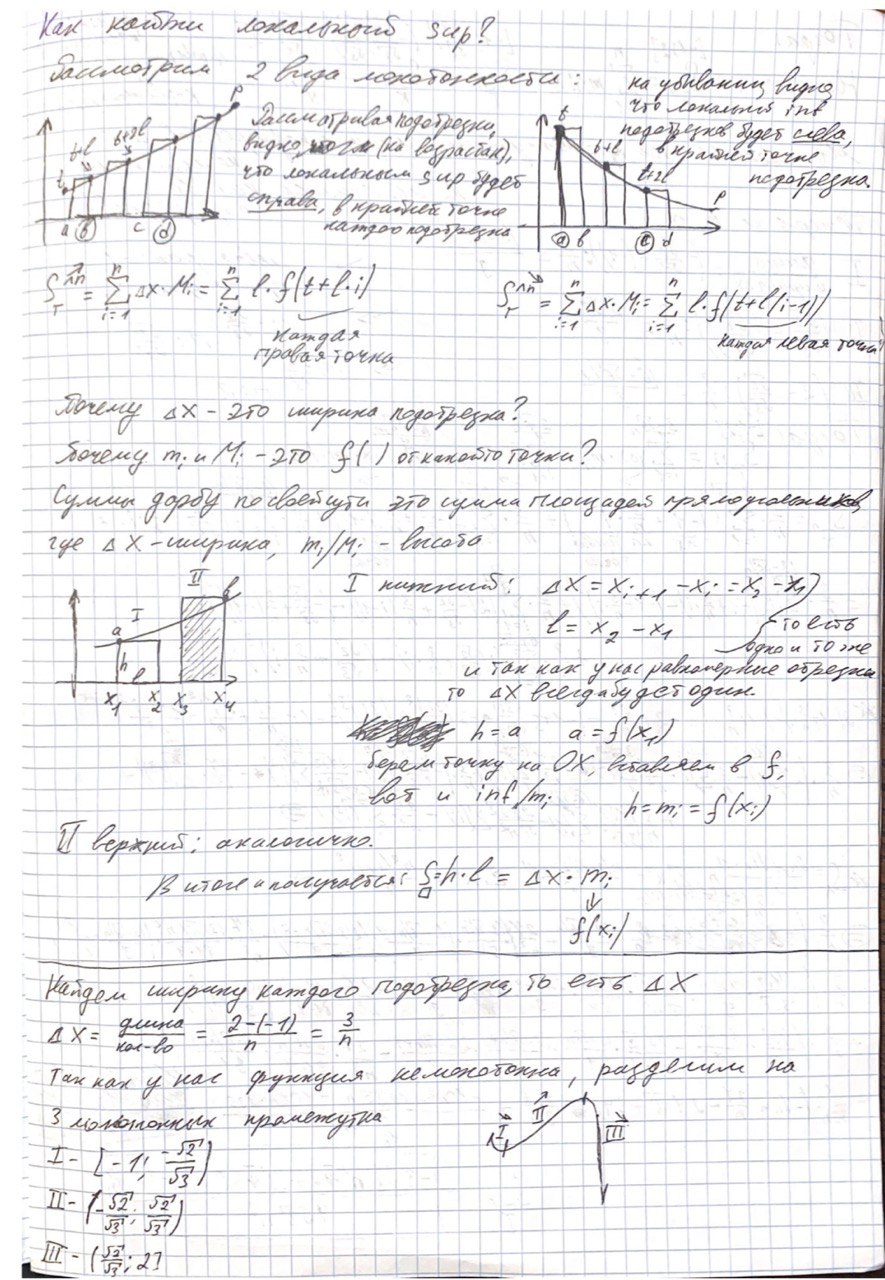 Как найти локальный sup?
Рассмотрим 2 вида монотонности:
Рассматривая подотрезки,
видно, (на возрастан),
что локальным sup будет
справа, в крайней точке
каждого подотрезка
на убывании видно,
что локальн inf
подотрезков будет слева,
в крайней точке
подотрезка.
t t+l t+2l P
a b c d
t t+l t+2l P
a b c d
S_T^n = Σ_{i=1}^n Δx·M_i = Σ_{i=1}^n l·f(t+l·i)
каждая
правая точка
S_T^n = Σ_{i=1}^n Δx·M_i = Σ_{i=1}^n l·f(t+l(i-1))
каждая левая точка
Почему ΔX - это ширина подотрезка?
Почему m_i и M_i - это f( ) от какой то точки?
Суммы дарбу по своей сути это сумма площадей прямоугольников,
где ΔX - ширина, m_i/M_i - высота
I нижний: ΔX = X_{i+1} - X_i = X_2 - X_1
l = X_2 - X_1
то есть
одно и то же
и так как у нас равномерные отрезки
то ΔX всегда будет один.
I II a b h l
X_1 X_2 X_3 X_4
h = a a = f(x_1)
берем точку на OX, вставляем в f,
вот и inf/m_i
h = m_i = f(x_i)
II верхний: аналогично.
В итоге и получается: S_□ = h·l = ΔX·m_i
↓
f(x_i)
Найдем ширину каждого подотрезка, то есть ΔX
ΔX = длина/кол-во = 2-(-1)/n = 3/n
Так как у нас функция немонотонна, разделим на
3 монотонных промежутка
I II III
I - [-1; -√2/√3)
II - (-√2/√3; √2/√3)
III - (√2/√3; 2]